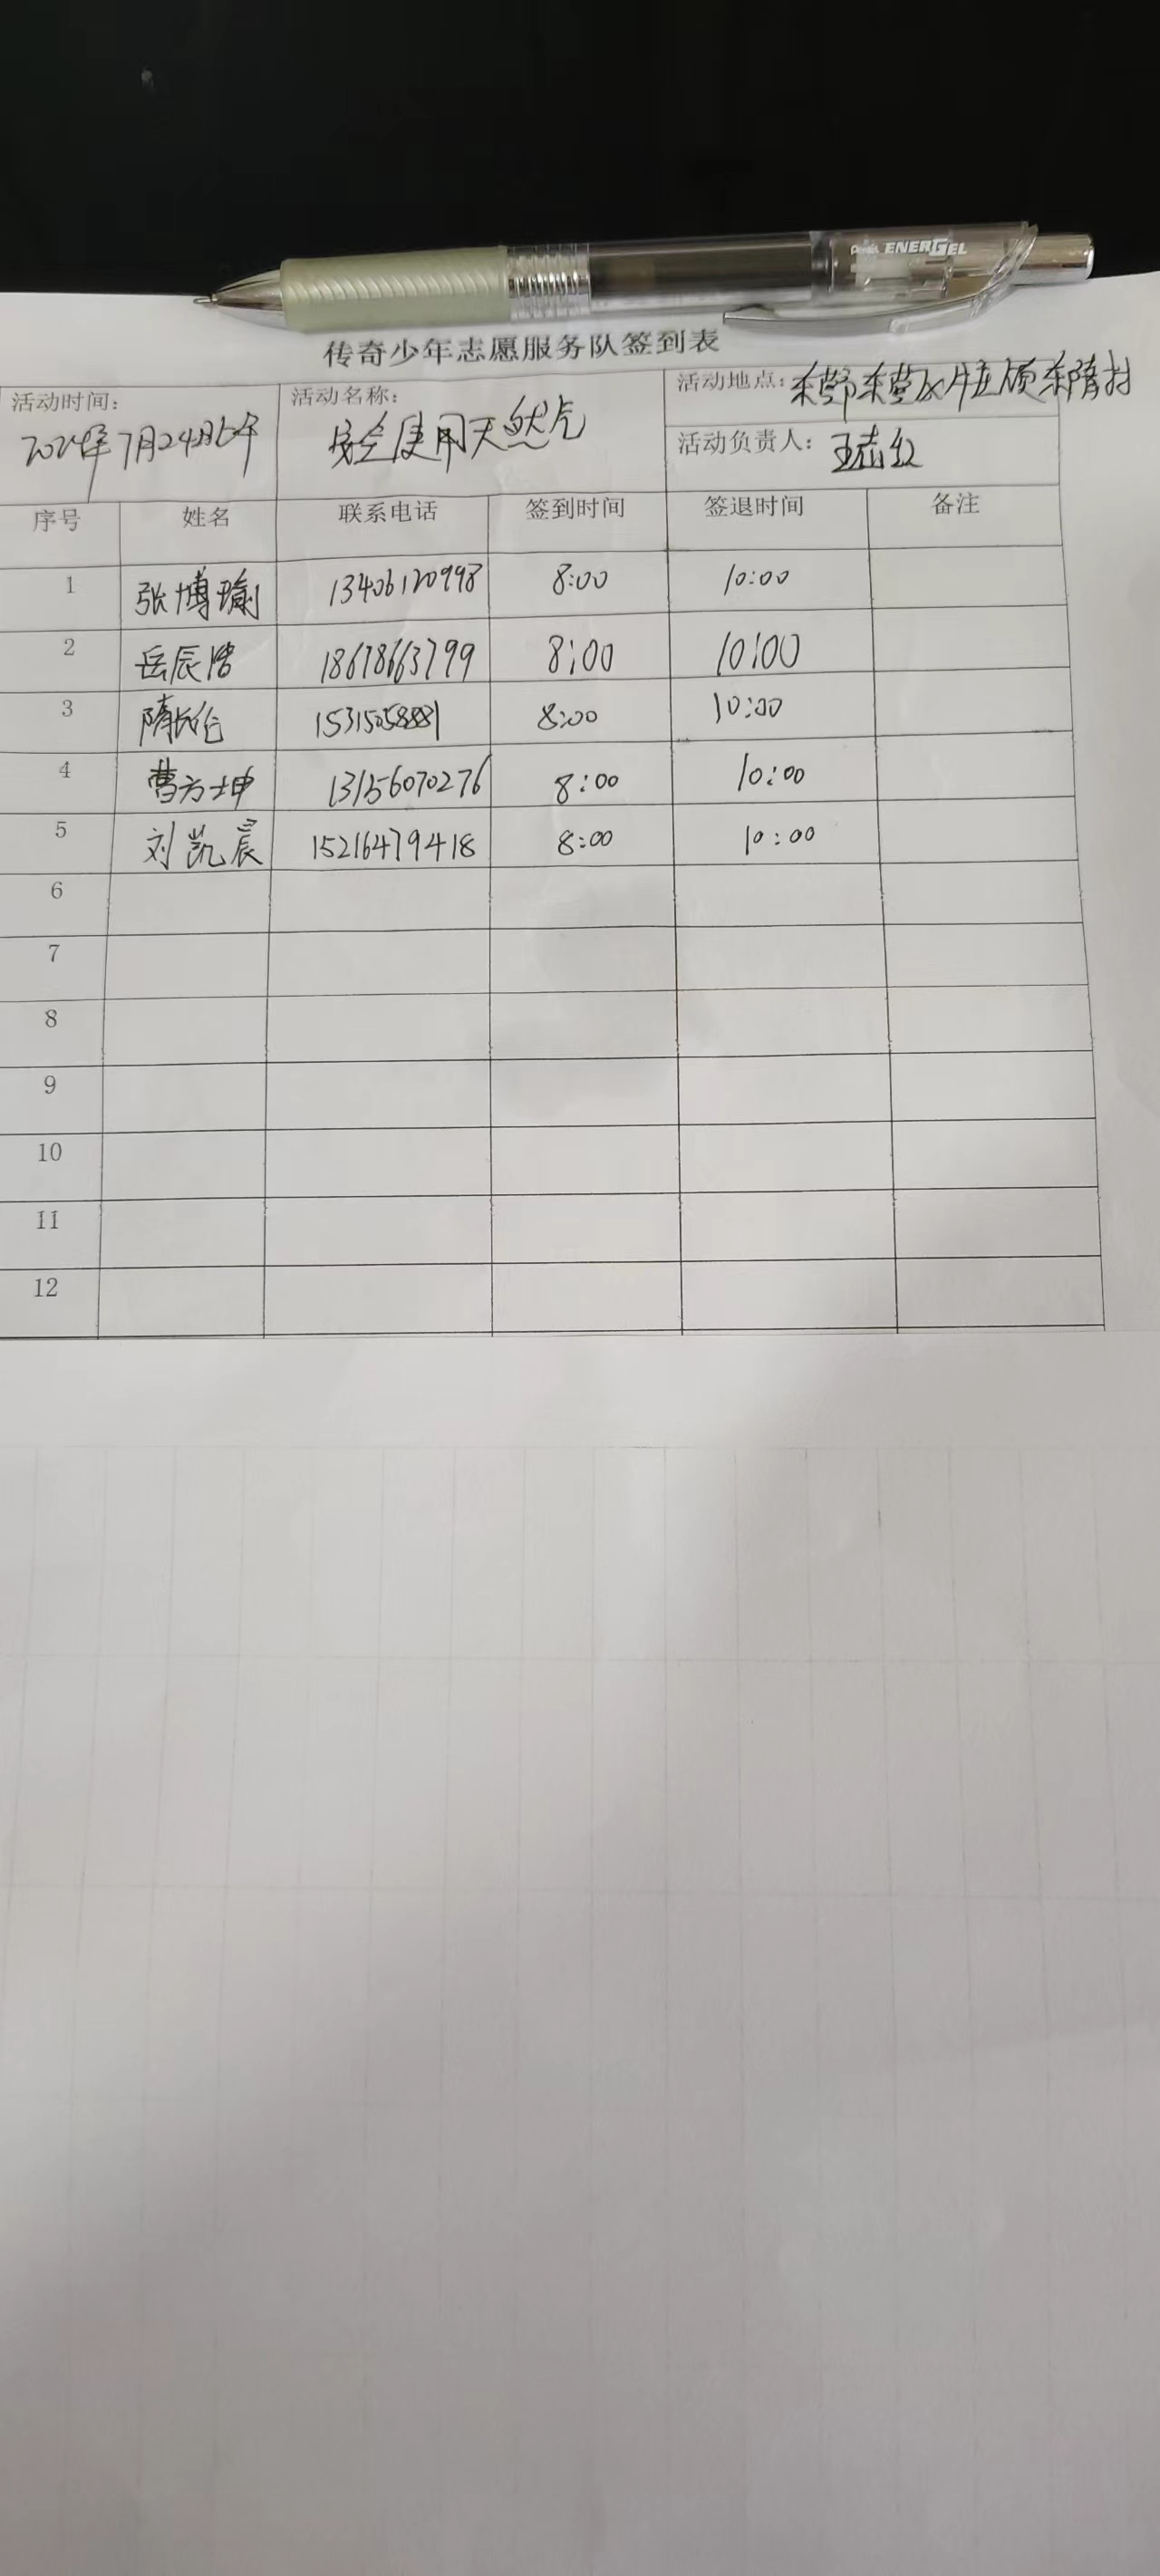 Pentel ENERGEL
传奇少年志愿服务队签到表
活动时间: 2024年7月24日上午
活动名称: 安全使用天然气
活动地点: 东营市东营区牛庄镇东隋村
活动负责人: 王志红
序号 姓名 联系电话 签到时间 签退时间 备注
1 张博瑜 13406120998 8:00 10:00
2 岳辰浩 18678663799 8:00 10:00
3 隋 15315058881 8:00 10:00
4 曹方坤 13156070276 8:00 10:00
5 刘凯晨 15216479418 8:00 10:00
6
7
8
9
10
11
12